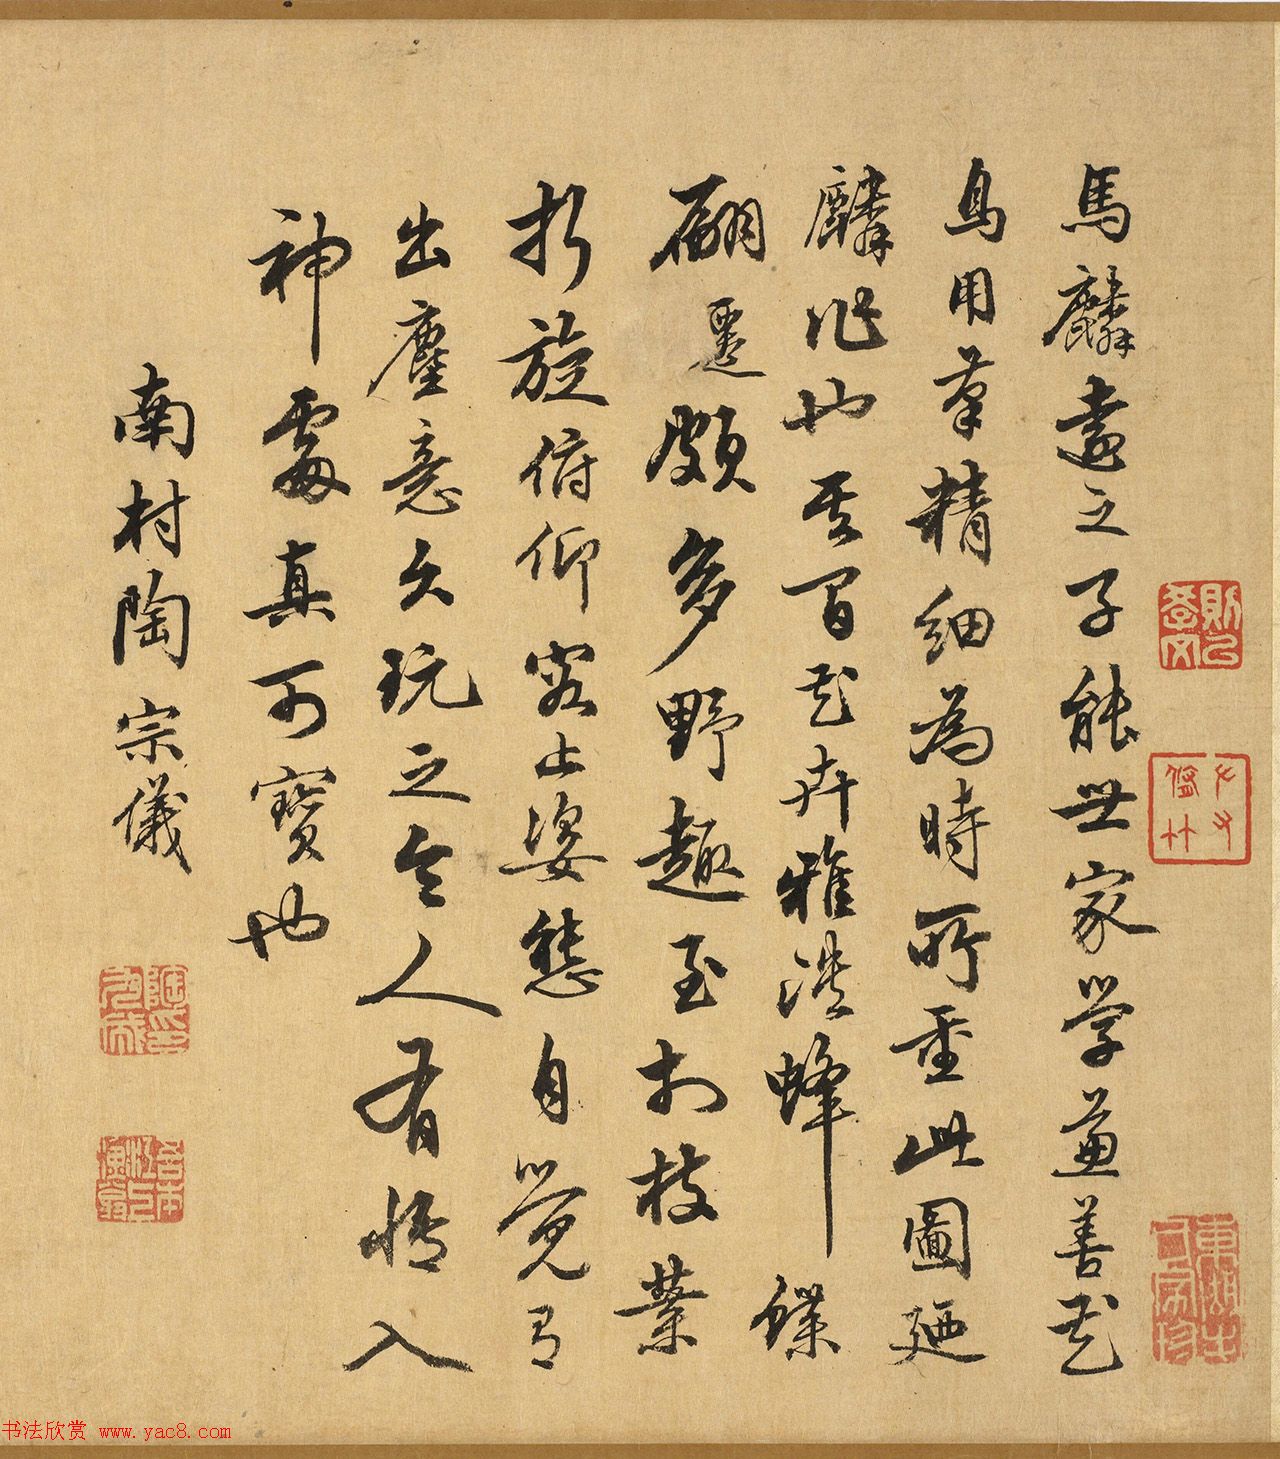 馬麟遠之子能世家學兼善花
鳥用筆精細為時所重此圖廼
麟作也其間花卉雅淡蜂蝶
翩遷頗多野趣至於枝葉
折旋俯仰容止姿態自覺有
出塵意久玩之令人有悟入
神處真可寶也
南村陶宗儀
书法欣赏 www.yac8.com